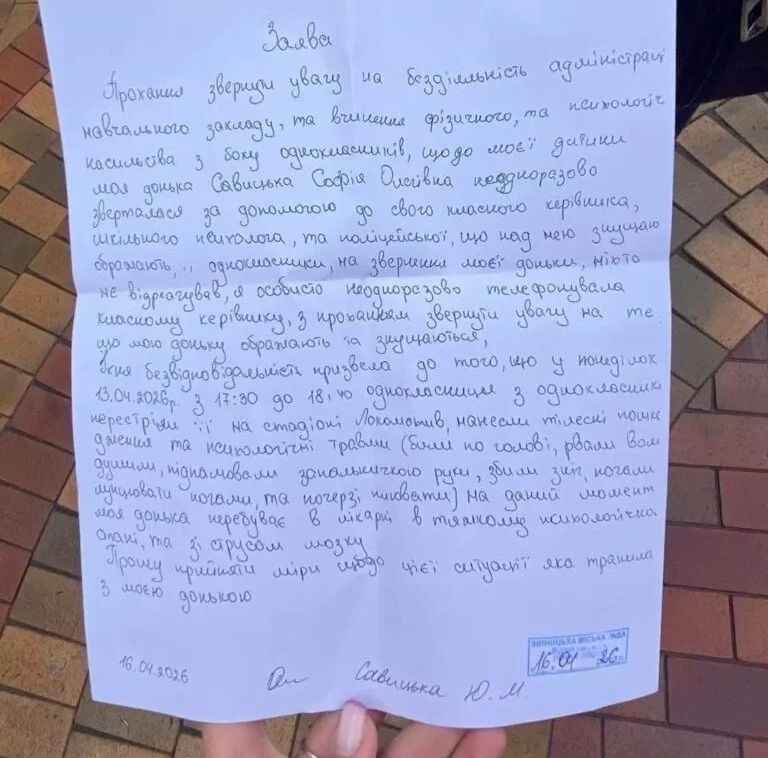 Заява
Прохання звернути увагу на бездіяльність адміністраці
навчального закладу, та вчинення фізичного, та психологіч
насильства з боку однокласників, щодо моєї дитини
моя донька Савицька Софія Олегівна неодноразово
зверталася за допомогою до свого класного керівника,
шкільного психолога, та поліцейської, що над нею знущаю
ображають, її однокласники, на звернення моєї доньки, ніхто
не відреагував, я особисто неодноразово телефонувала
класному керівнику, з проханням звернути увагу на те
що мою доньку ображають та знущаються,
безвідповідальність призвела до того, що у понеділок
13.04.2026р. з 17:30 до 18:40 однокласниця з однокласника
перестріли її на стадіоні Локомотив, нанесли тілесні пошко
дження та психологічні травми (били по голові, рвали вол
душили, підпалювали запальничкою руки, збили з ніг, ногами
ногами, та почерзі плювати) на даний момент
моя донька перебуває в лікарні в тяжкому психологічно
стані, та зі струсом мозку
Прошу прийняти міри щодо цієї ситуації яка трапила
з моєю донькою
16.04.2026 Савицька Ю. М.
ВІННИЦЬКА МІСЬКА РАДА
16.04 26р.